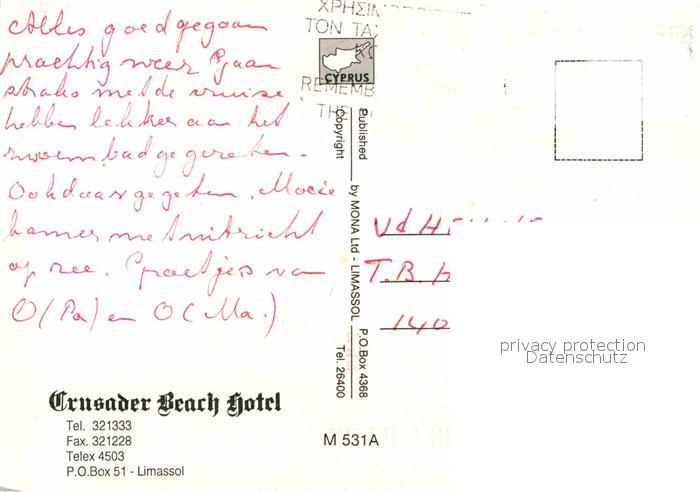 Alles goed gegaan
prachtig weer Gaan
straks met de cruise
hebben lekker aan het
zwembad gegeten.
Ook daar gegeten. Mooie
kamer met uitzicht
op zee. Groetjes van
O(Pa) en O(Ma.)
Crusader Beach Hotel
Tel. 321333
Fax. 321228
Telex 4503
P.O.Box 51 - Limassol
ΧΡΗΣΙΜ
ΤΟΝ ΤΑΧ
CYPRUS
REMEMB
THE
Published by MONA Ltd - LIMASSOL P.O.Box 4368
Copyright Tel. 26400
M 531A
Vd H
T.B.
140
privacy protection
Datenschutz